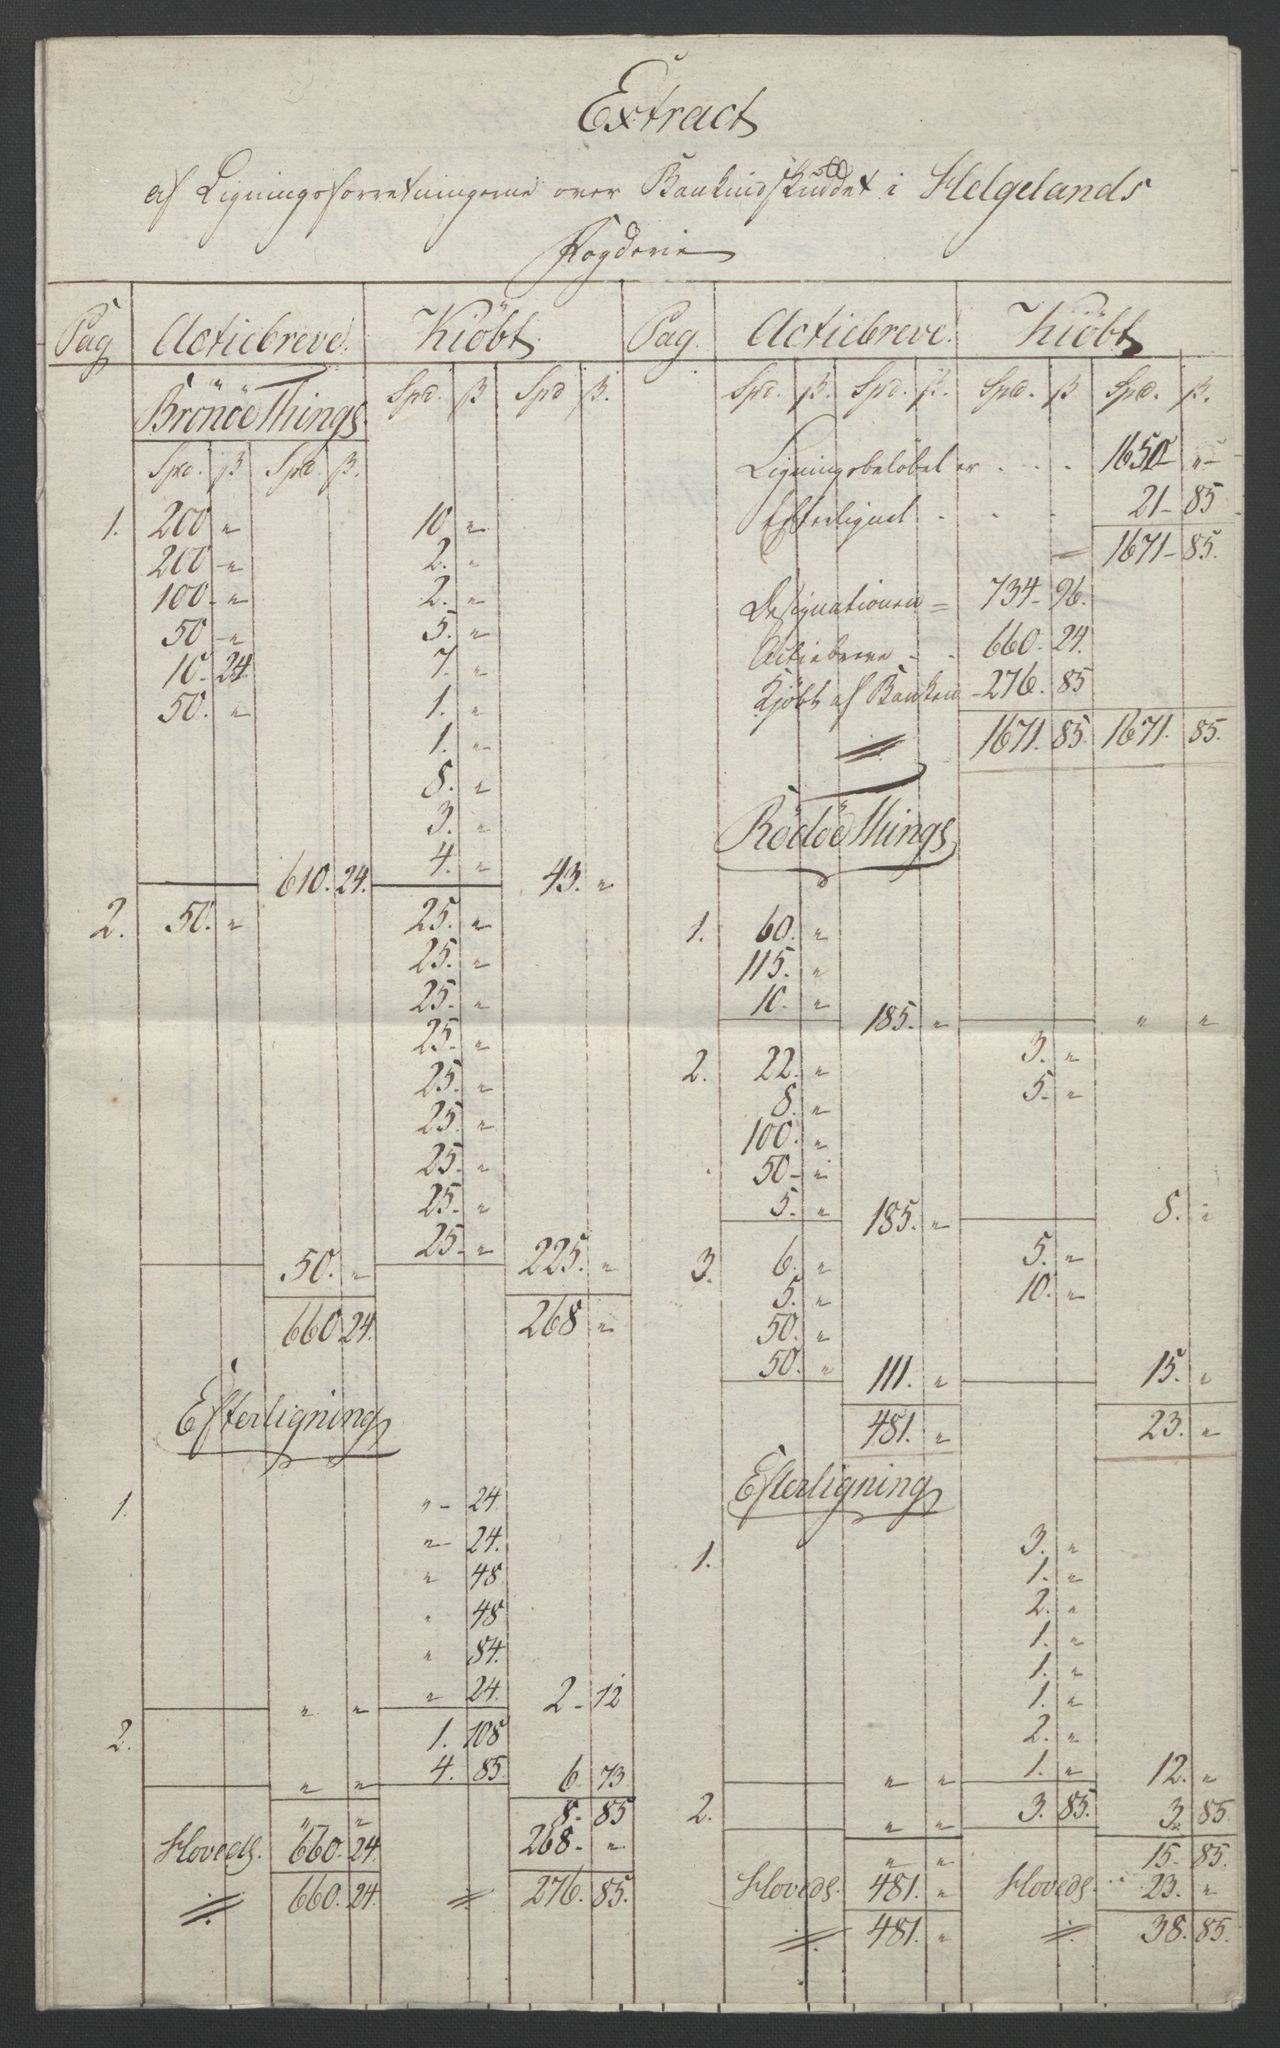 Extract
af Ligningsforretningerne over Bankindskuddet i Helgelands
Fogderie
Pag Actiebreve. Kiöbt.
Brönöe Things.
Spd. β Spd. β. Spd. β Spd β.
1. 200 " 10 "
200 " 2. "
100 " 2. "
50 " 5. "
10. 24 7. "
50. " 1. "
1. "
8. "
3. "
4. "
610. 24. 43. "
2. 50. " 25. "
25. "
25. "
25. "
25. "
25. "
25. "
25. "
25. "
50. " 225. "
660 24. 268 "
Efterligning
1. " 24
" 24.
" 48
" 48
" 84.
" 24.
" " 2 - 12
2. 1. 108
4. 85.
" " 6. 73
" " 8. 85
Hoveds. 660. 24. 268 "
660. 24. 276. 85.
Pag. Actiebreve. Kiöbt
Spd. β. Spd. β. Spd. β Spd. β.
Ligningsbelöbet er . . . 1650 "
Efterlignet . . . 21 - 85
1671 - 85.
Designationen = 734 - 96.
Actiebreve - - 660. 24.
Kjöbt af Banken - 276. 85
1671. 85. 1671. 85.
Rödöe Things
1. 60. "
115. "
10. "
185. " " "
2. 22. " 3. "
8. " 5. "
100. "
50 - "
5. "
185. " 8. "
3. 6. " 5. "
5. " 10. "
50. "
50. "
111. " 15. "
481. " 23. "
Efterligning
1. 3. "
1. "
2. "
1. "
1. "
1. "
2. "
1. "
" " 12. "
2. 3. 85.
" " 3. 85.
" " 15. 85.
Hoveds. 481. " Hoveds. 23. "
481. " 38. 85.